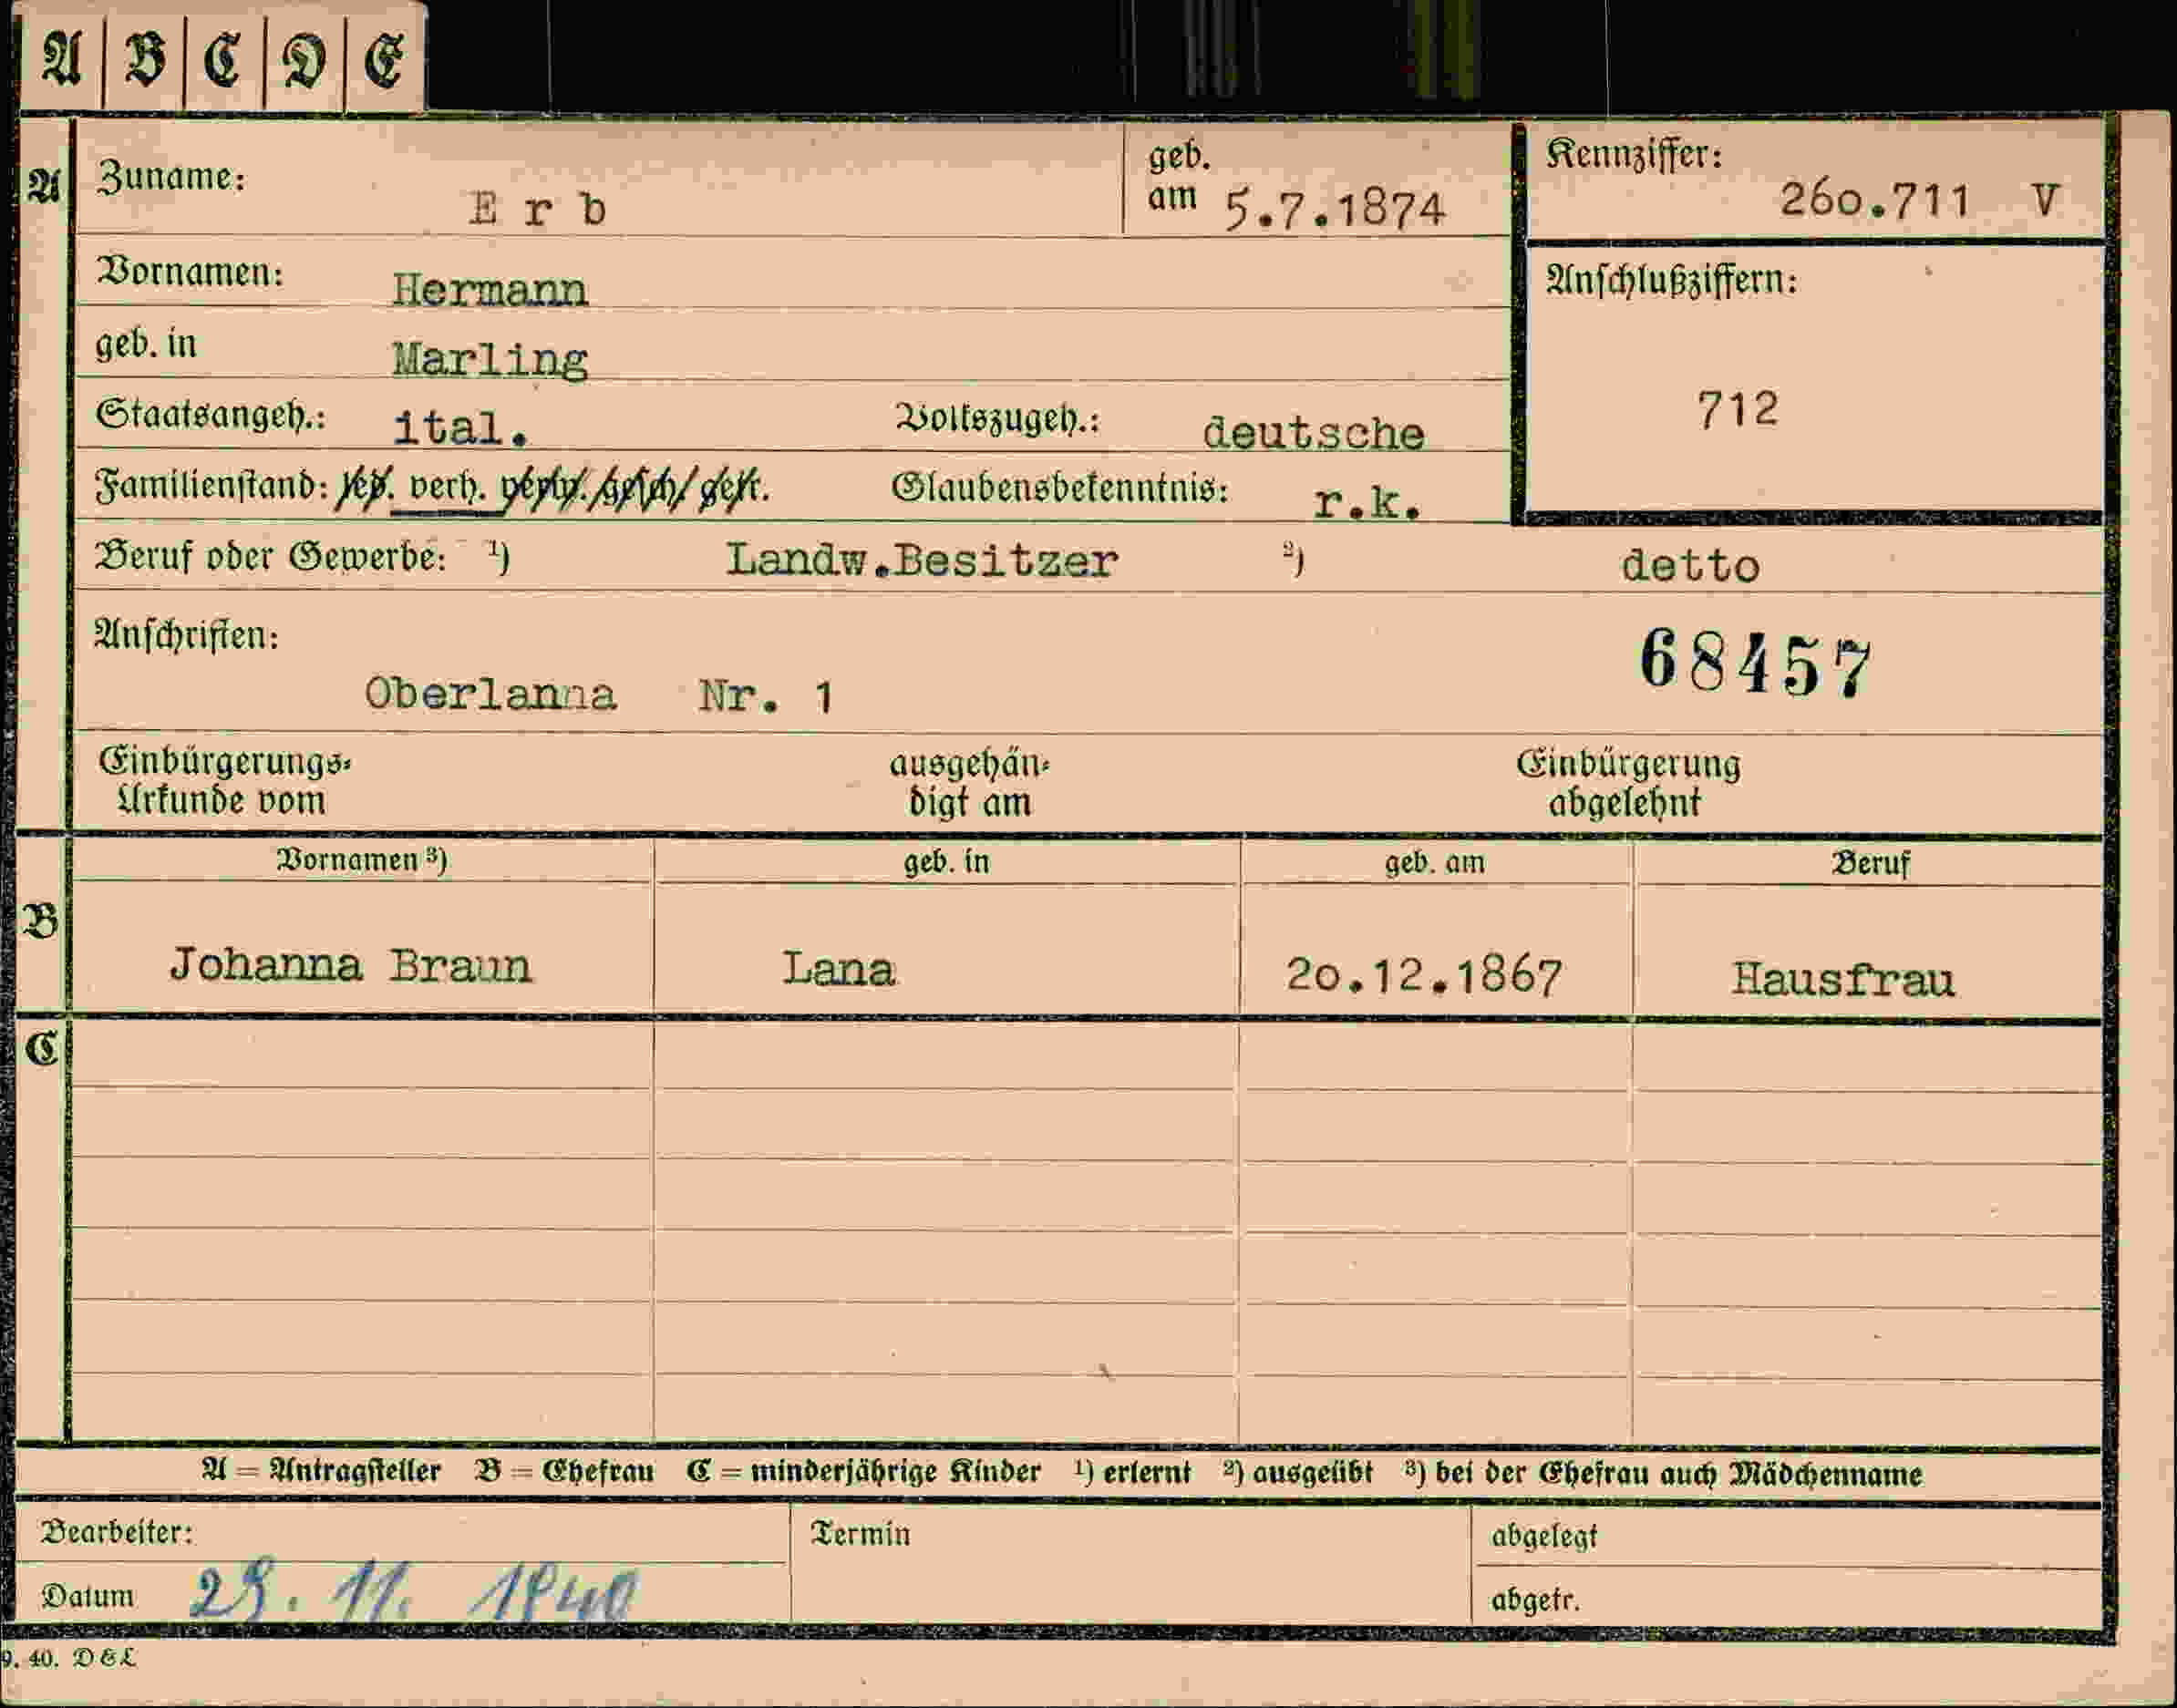 A B C D E
A Zuname: Erb geb. am 5.7.1874 Kennziffer: 260.711 V
Vornamen: Hermann Anschlußziffern:
geb. in Marling
Staatsangeh.: ital. Volkszugeh.: deutsche 712
Familienstand: led. verh. verw. gesch. getr. Glaubensbekenntnis: r.k.
Beruf oder Gewerbe: ¹) Landw.Besitzer ²) detto
Anschriften: 68457
Oberlanna Nr. 1
Einbürgerungs- ausgehän- Einbürgerung
Urkunde vom digt am abgelehnt
Vornamen ³) geb. in geb. am Beruf
B
Johanna Braun Lana 20.12.1867 Hausfrau
C
A = Antragsteller B = Ehefrau C = minderjährige Kinder ¹) erlernt ²) ausgeübt ³) bei der Ehefrau auch Mädchenname
Bearbeiter: Termin abgelegt
Datum 29. 11. 1940 abgetr.
9. 40. D & L